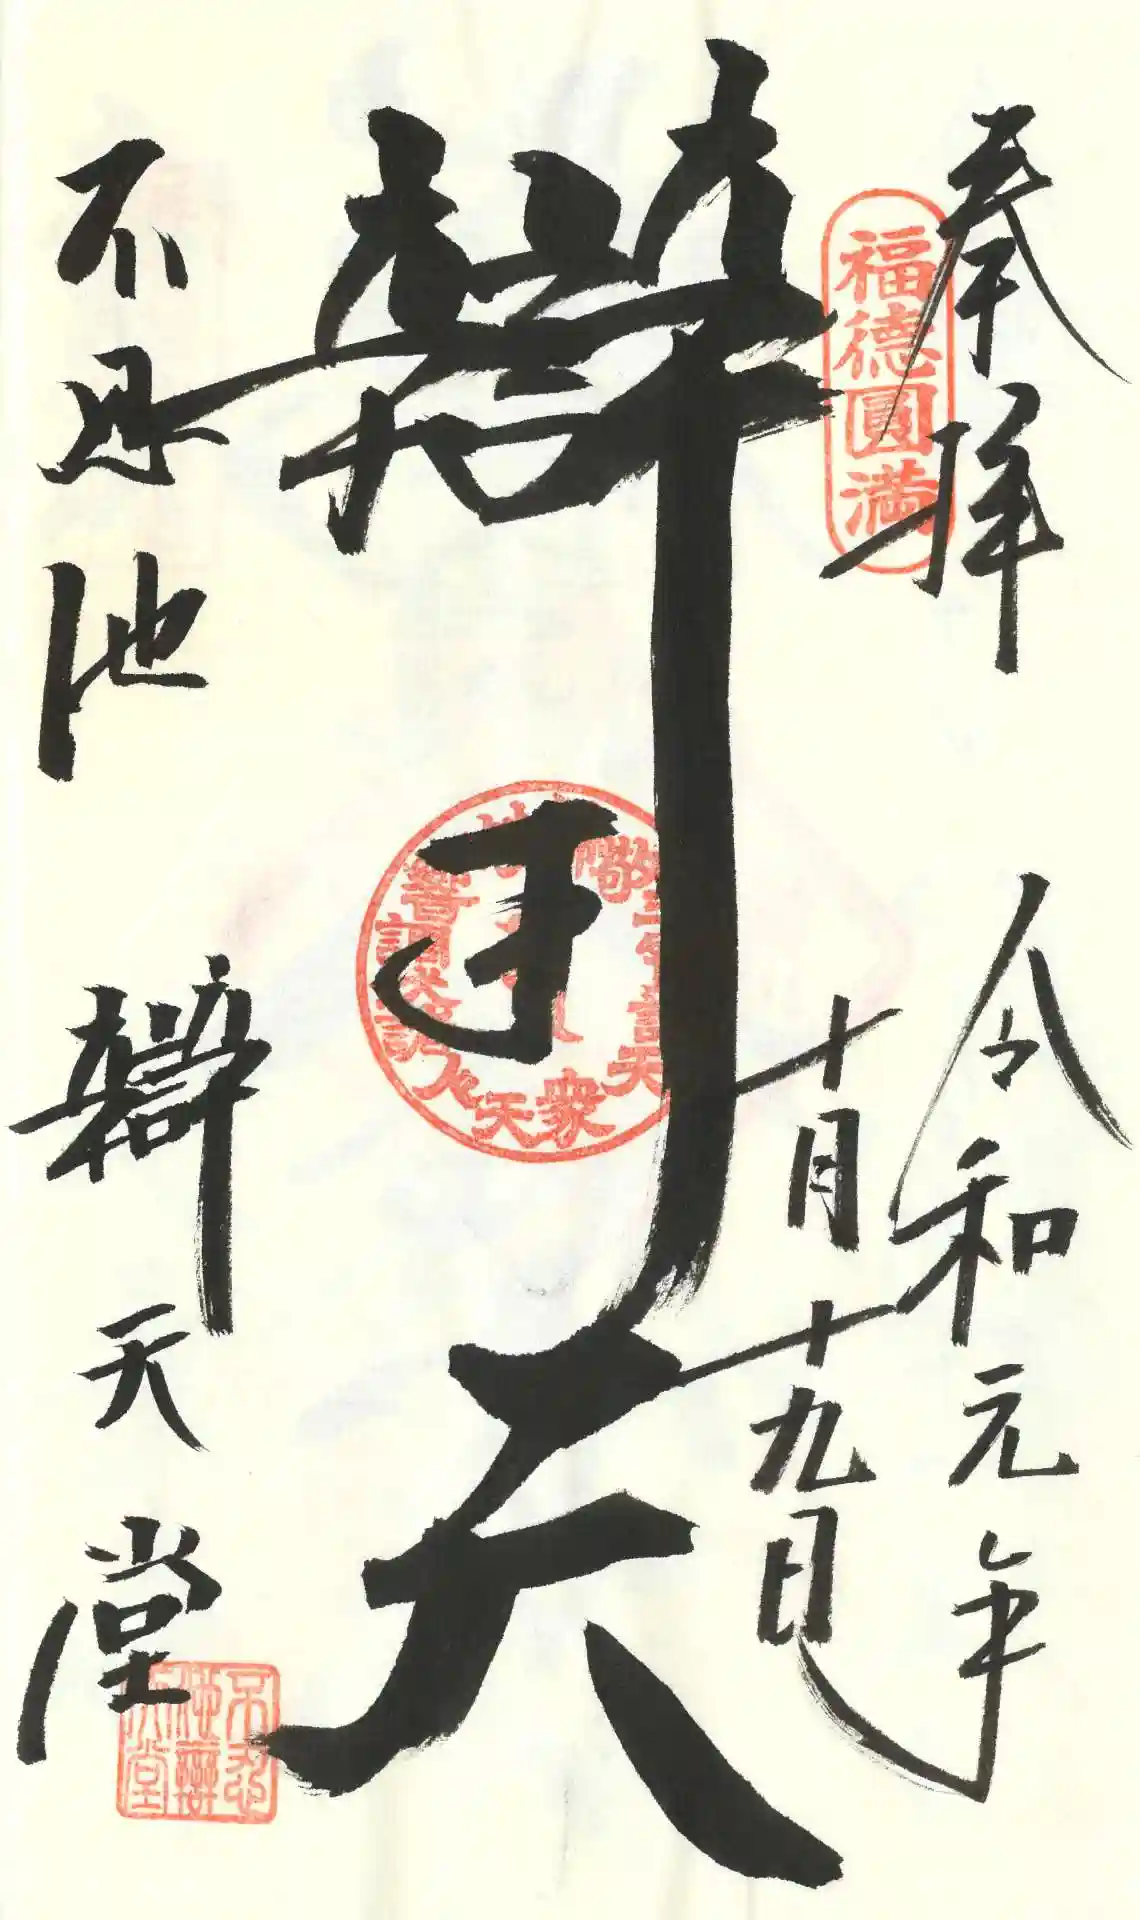 奉拝
福德圓満
令和元年
十月十九日
辯才天
不忍池
辯天堂
不忍
池辯
天堂